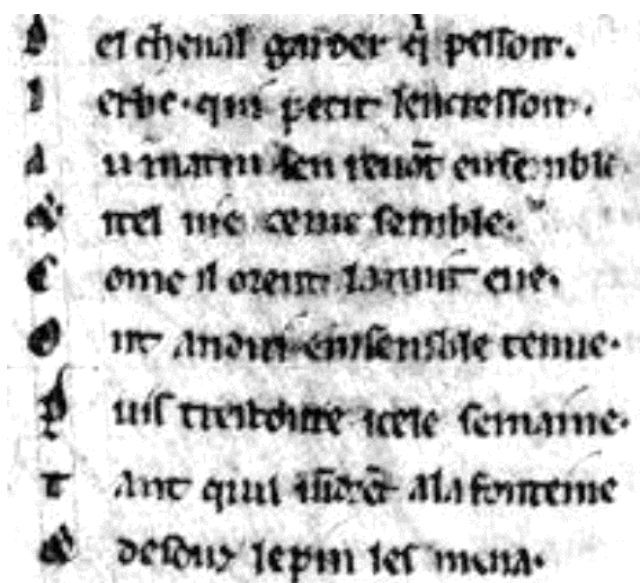 D et cheval garder q̃ pesson.
L erbe. qui petit lencresson.
A u matin sen revōt ensemble
A itel vie ce me semble.
C ome il orent la nuit eue.
O nt andui ensemble tenue.
P uis trestoute icele semaine.
T ant quil vīdrēt a la fonteine
desouz le pin les mena.